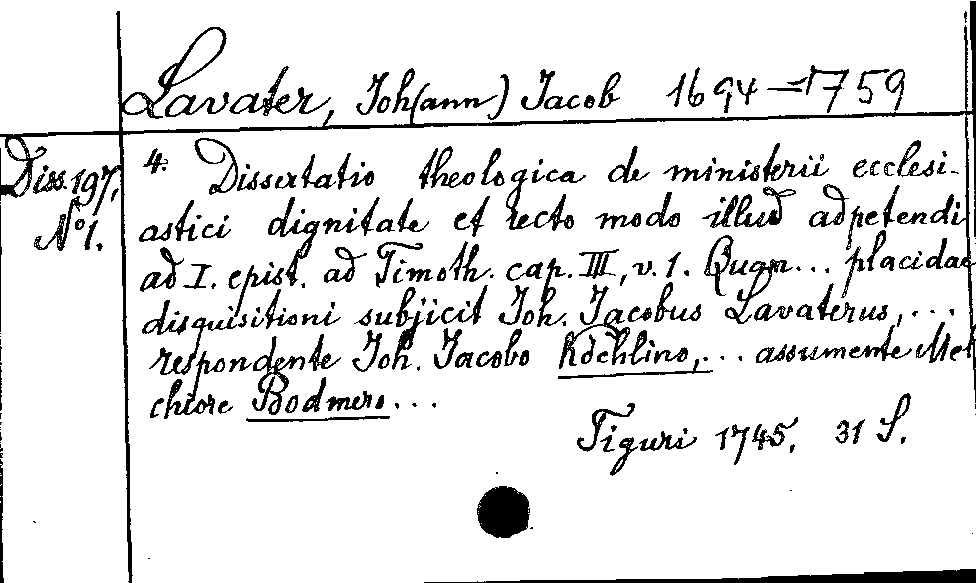 Lavater, Joh(ann) Jacob 1694-1759
Diss. 197,
No 1.
4. Dissertatio theologica de ministerii ecclesi-
astici dignitate et recto modo illud adpetendi
ad I. epist. ad Timoth. cap. III, v. 1. Quam... placidae
disquisitioni subjicit Joh. Jacobus Lavaterus,...
respondente Joh. Jacobo Köchlino,... assumente Mel
chiore Bodmero...
Tiguri 1745. 31 S.